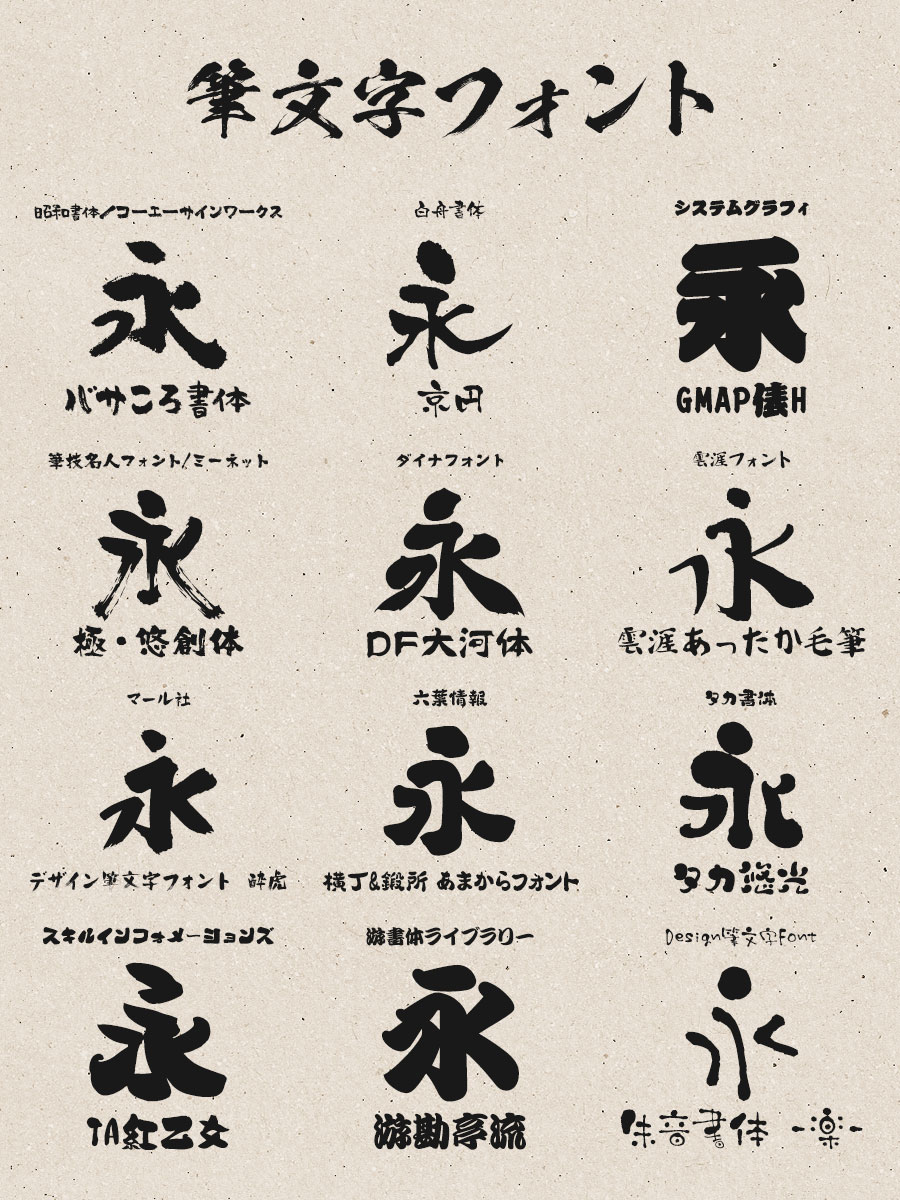 筆文字フォント
昭和書体/コーエーサインワークス
永
バサころ書体
白舟書体
永
京円
システムグラフィ
永
GMAP髭H
筆技名人フォント/ミーネット
永
極・悠創体
ダイナフォント
永
DF大河体
雲涯フォント
永
雲涯あったか毛筆
マール社
永
デザイン筆文字フォント 酔虎
六葉情報
永
横丁&鍛所 あまからフォント
タカ書体
永
タカ悠光
スキルインフォメーションズ
永
TA紅乙女
游書体ライブラリー
永
游勘亭流
Design筆文字Font
永
朱音書体 -楽-